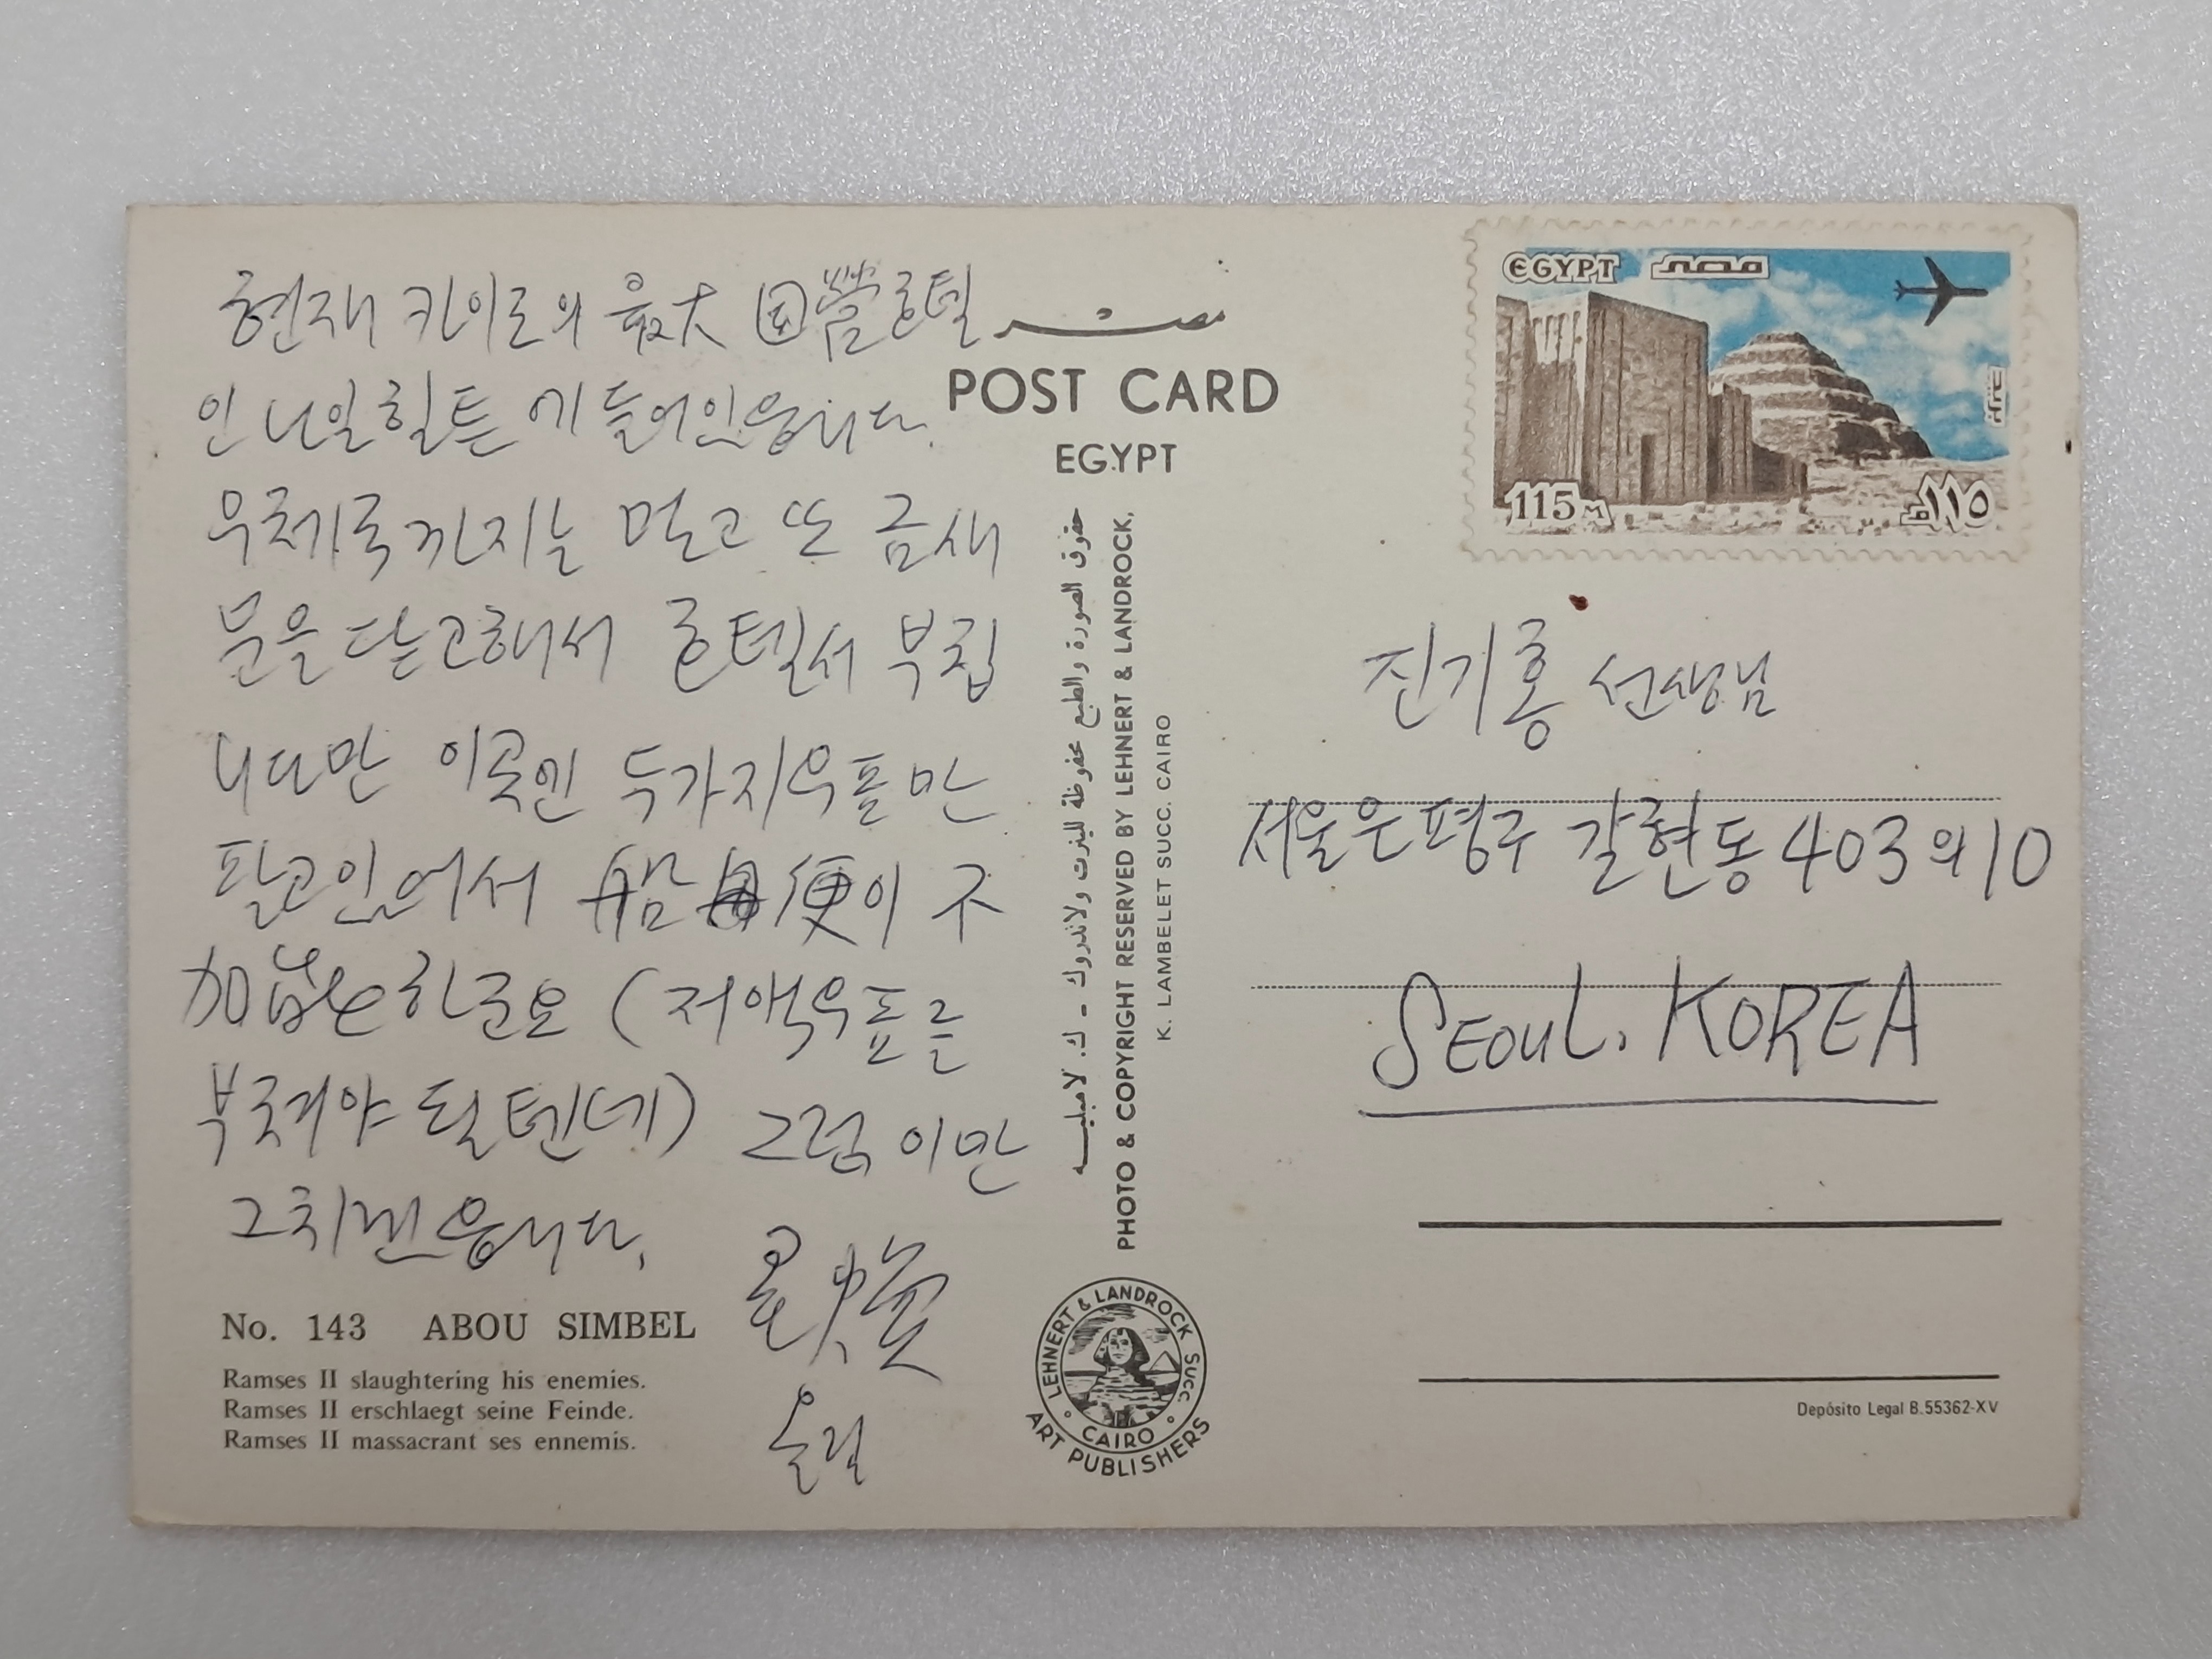 현재 카이로의 最大 国營호텔
인 나일힐튼에 들어있읍니다.
우체국까지는 멀고 또 금새
문을 닫고해서 호텔서 부칩
니다만 이곳엔 두가지우표만
팔고있어서 船便이 不
可能하군요 (저액우표를
부쳐야 될텐데) 그럼 이만
그치겠읍니다.
올림
No. 143 ABOU SIMBEL
Ramses II slaughtering his enemies.
Ramses II erschlaegt seine Feinde.
Ramses II massacrant ses ennemis.
مصر
POST CARD
EGYPT
حقوق الصورة والطبع محفوظة للينرت ولاندروك - ك. لامبليه
PHOTO & COPYRIGHT RESERVED BY LEHNERT & LANDROCK,
K. LAMBELET SUCC. CAIRO
LEHNERT & LANDROCK SUCC.
CAIRO
ART PUBLISHERS
EGYPT مصر
115 M ١١٥
진기홍 선생님
서울은평구 갈현동 403의10
SEOUL. KOREA
Depósito Legal B.55362-XV